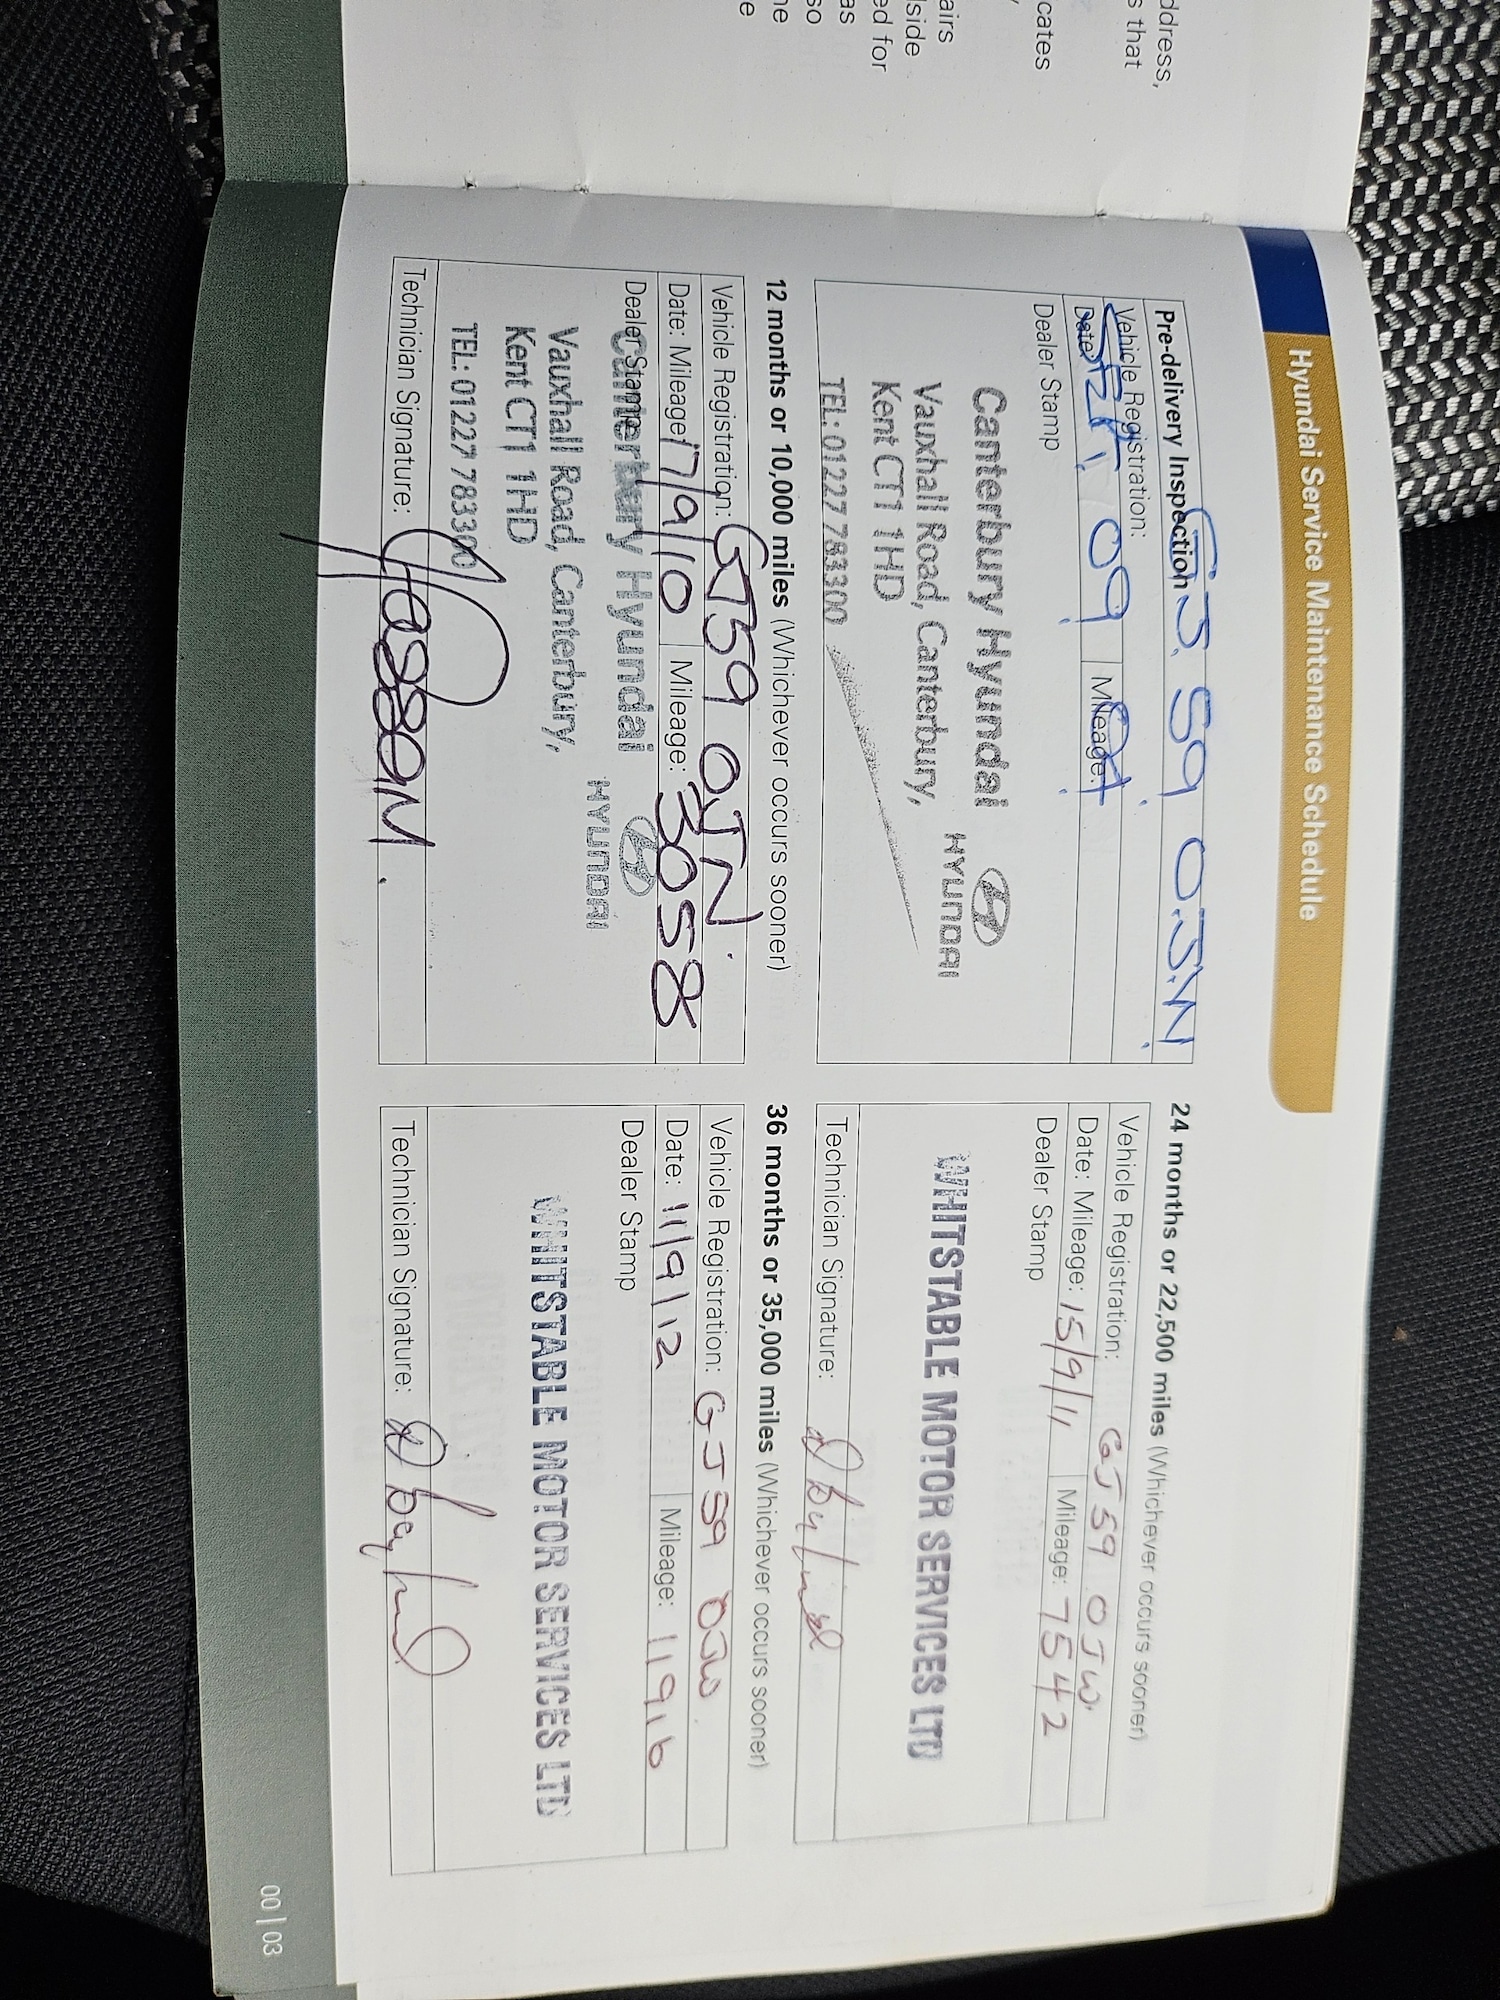 ddress,
s that
cates
airs
lside
ed for
as
so
ne
e
Hyundai Service Maintenance Schedule
Pre-delivery Inspection
GJ 59 OJN
Vehicle Registration:
Date: SEPT 09 Mileage:
Dealer Stamp
Canterbury Hyundai
HYUNDAI
Vauxhall Road, Canterbury,
Kent CT1 1HD
TEL: 01227 783300
12 months or 10,000 miles (Whichever occurs sooner)
Vehicle Registration: GJ59 OJN
Date: Mileage: 17/9/10 Mileage: 3058
Dealer Stamp
Canterbury Hyundai
HYUNDAI
Vauxhall Road, Canterbury,
Kent CT1 1HD
TEL: 01227 783300
Technician Signature:
24 months or 22,500 miles (Whichever occurs sooner)
Vehicle Registration: GJ59 OJW.
Date: Mileage: 15/9/11 Mileage: 7542
Dealer Stamp
WHITSTABLE MOTOR SERVICES LTD
Technician Signature:
36 months or 35,000 miles (Whichever occurs sooner)
Vehicle Registration: GJ59 OJW.
Date: 11/9/12 Mileage: 11916
Dealer Stamp
WHITSTABLE MOTOR SERVICES LTD
Technician Signature:
00|03